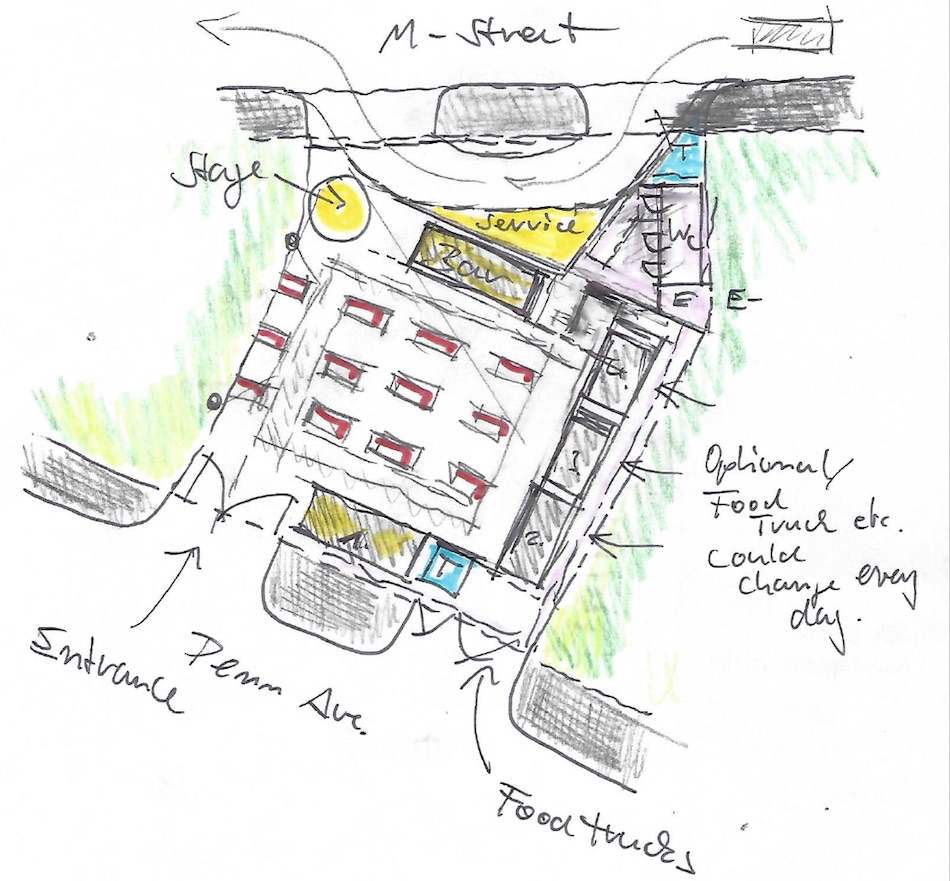 M-Street
Stage
Service
Bar
T
WC
E
E-
?
?
Optional
Food
Truck etc.
Could
change every
day.
T
Entrance
Penn Ave.
Food trucks